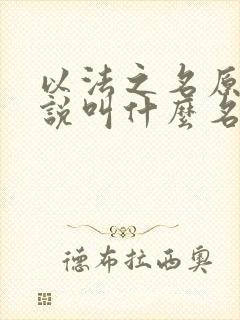 以法之名原
說叫什麼名
德布拉西奧